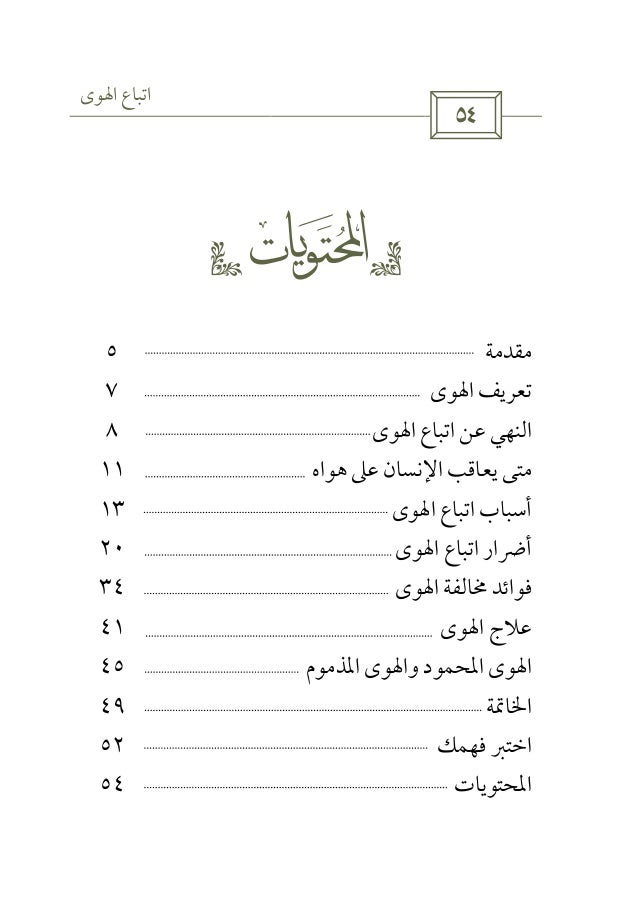 اتباع الهوى
٥٤
المُحْتَوَيَات
مقدمة ٥
تعريف الهوى ٧
النهي عن اتباع الهوى ٨
متى يعاقب الإنسان على هواه ١١
أسباب اتباع الهوى ١٣
أضرار اتباع الهوى ٢٠
فوائد مخالفة الهوى ٣٤
علاج الهوى ٤١
الهوى المحمود والهوى المذموم ٤٥
الخاتمة ٤٩
اختبر فهمك ٥٢
المحتويات ٥٤